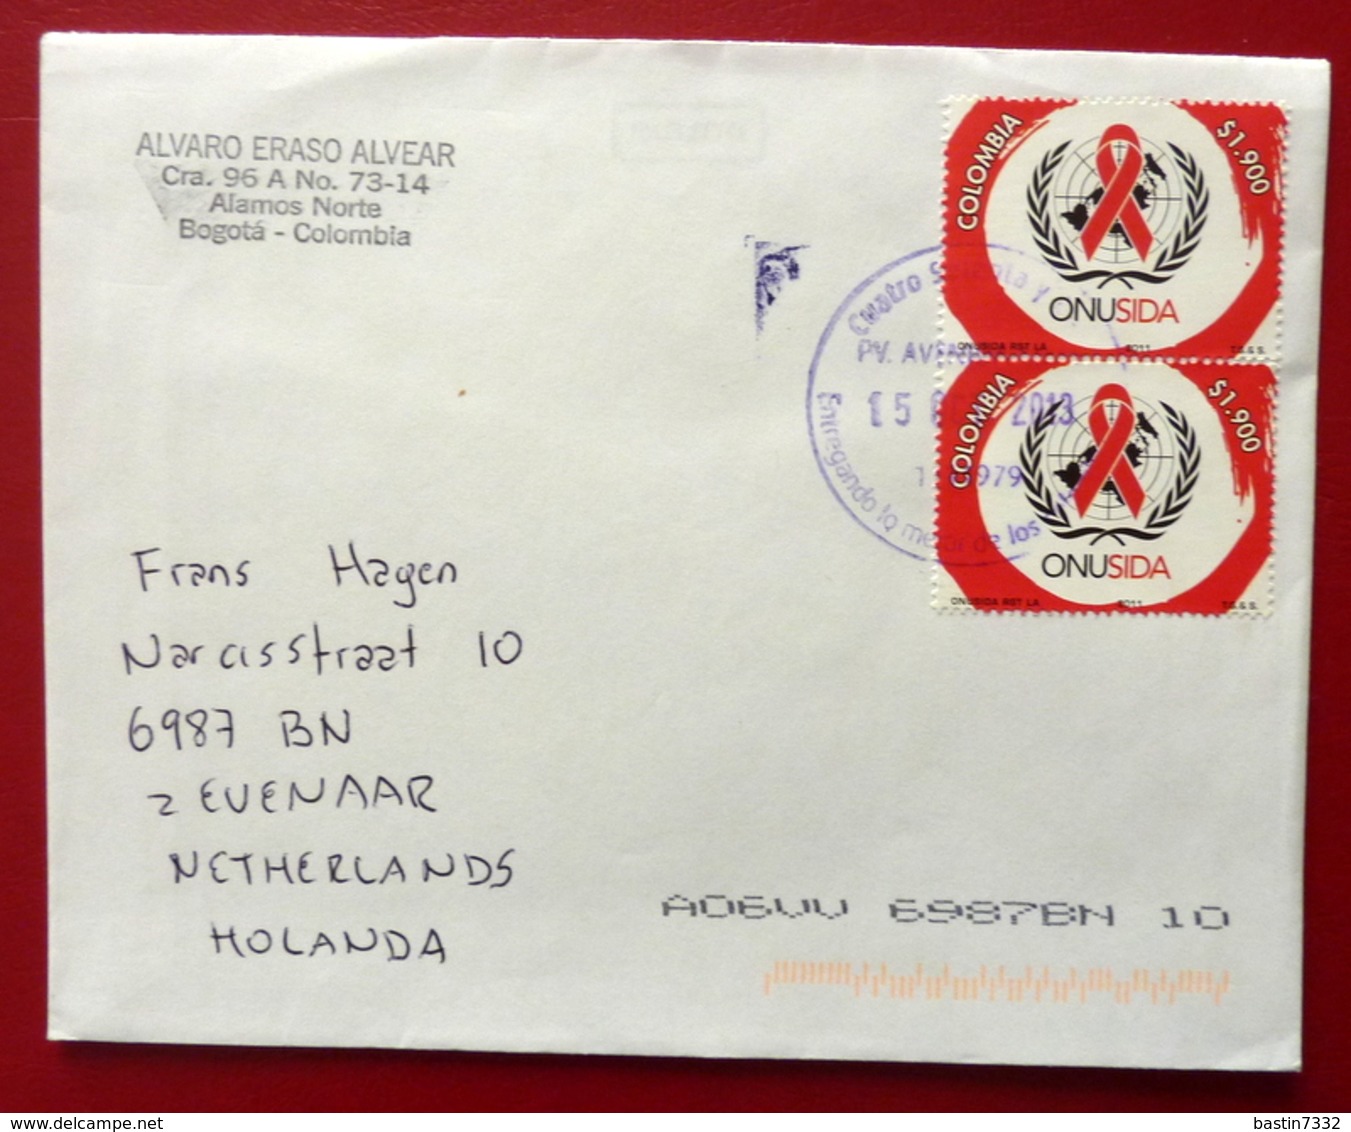 ALVARO ERASO ALVEAR
Cra. 96 A No. 73-14
Alamos Norte
Bogotá - Colombia
COLOMBIA
$1.900
ONUSIDA
ONUSIDA RST LA 2011 T.G.& S.
COLOMBIA
$1.900
ONUSIDA
ONUSIDA RST LA 2011 T.G.& S.
Cuatro Setenta y
PV.
15 2013
Entregando lo mejor de los
Frans Hagen
Narcisstraat 10
6987 BN
ZEVENAAR
NETHERLANDS
HOLANDA
AO6VV 6987BN 10
bastin7332